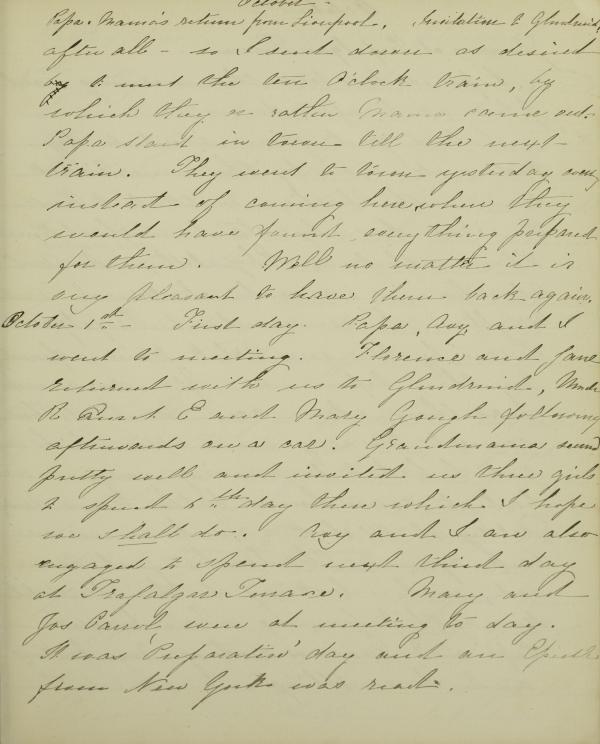 October -
Papa & Mama's return from Liverpool. Invitation to Glendruid,
after all - so I went down as desired
to meet the ten O'clock train, by
which they or rather Mama came out.
Papa staid in town till the next
train. They went to town yesterday eveng
instead of coming here, when they
would have found everything prepared
for them. Well no matter it is
very pleasant to have them back again.
October 1st - First day. Papa, Avy, and I
went to meeting. Florence and Jane
returned with us to Glendruid, Uncle
R Aunt E and Mary Gough following
afterwards on a car. Grandmama seemed
pretty well and invited us three girls
to spend 5th day there which I hope
we shall do. Avy and I are also
engaged to spend next third day
at Trafalgar Terrace. Mary and
Jos Carrol were at meeting to day.
It was 'Preparation' day and an Epistle
from New York was read.